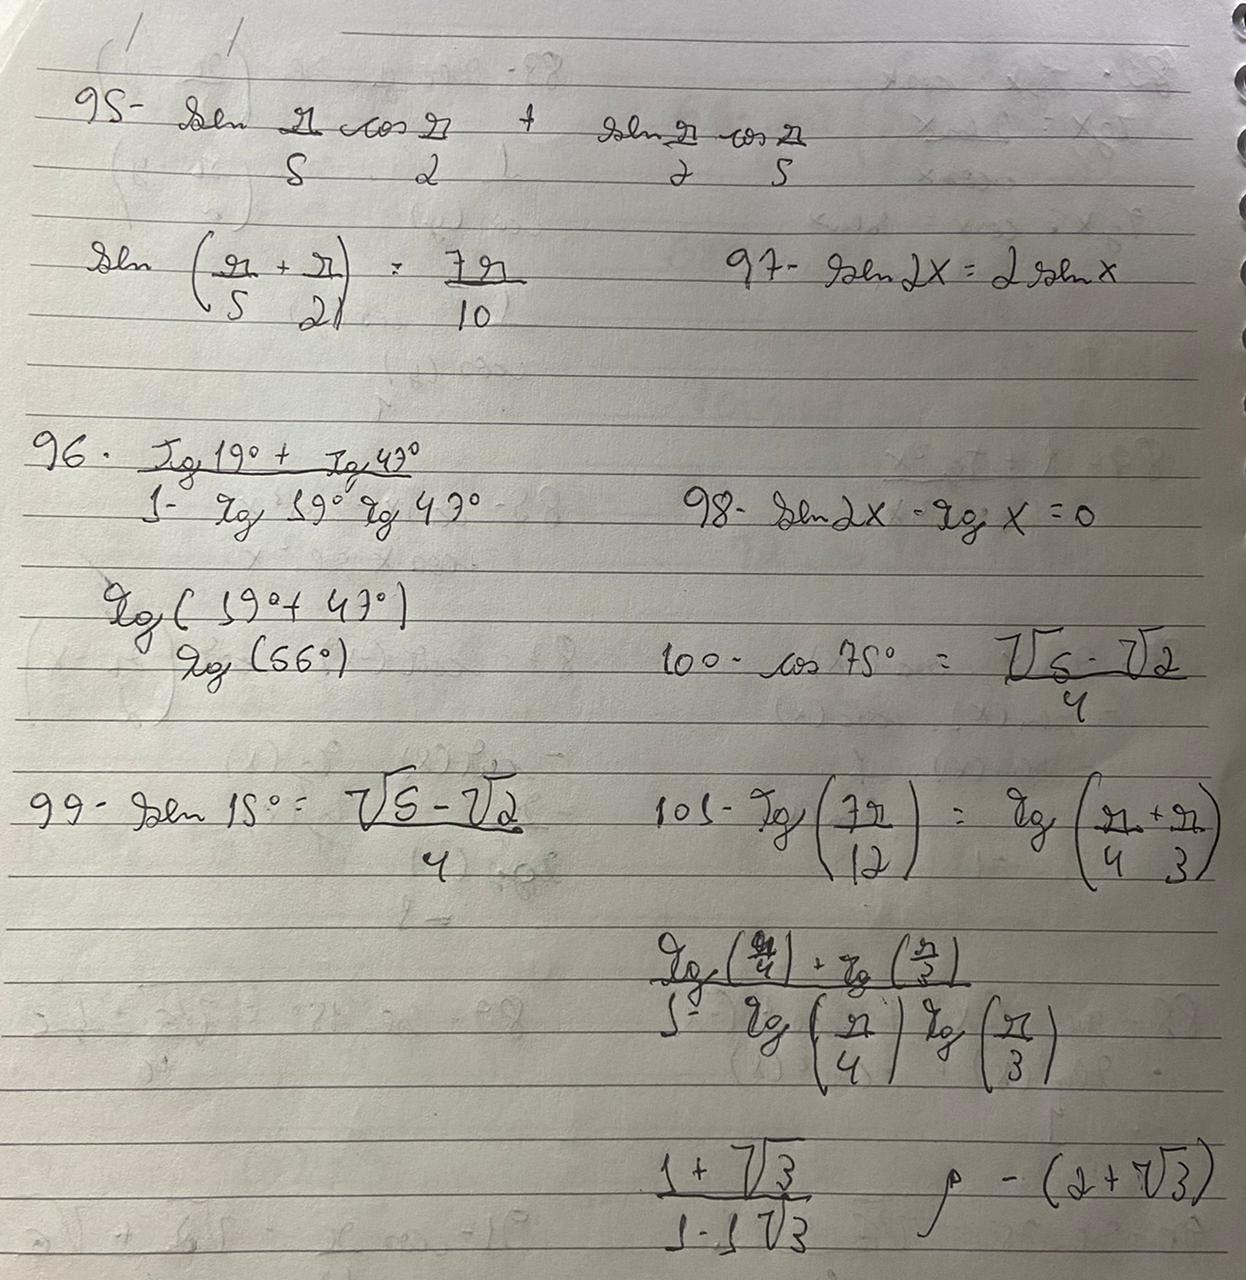 95- sen π/5 cos π/2 + sen π/2 cos π/5
sen (π/5 + π/2) = 7π/10
97- sen 2x = 2 sen x
96. Tg 19° + Tg 47°
1- tg 19° tg 47°
98- sen 2x - tg x = 0
tg ( 19° + 47° )
tg (66°)
100- cos 75° = √6 - √2 / 4
99- sen 15° = √6 - √2 / 4
101- Tg (7π/12) = tg (π/4 + π/3)
tg (π/4) + tg (π/3)
1- tg (π/4) tg (π/3)
1 + √3 / 1 - 1 √3
- (2 + √3)